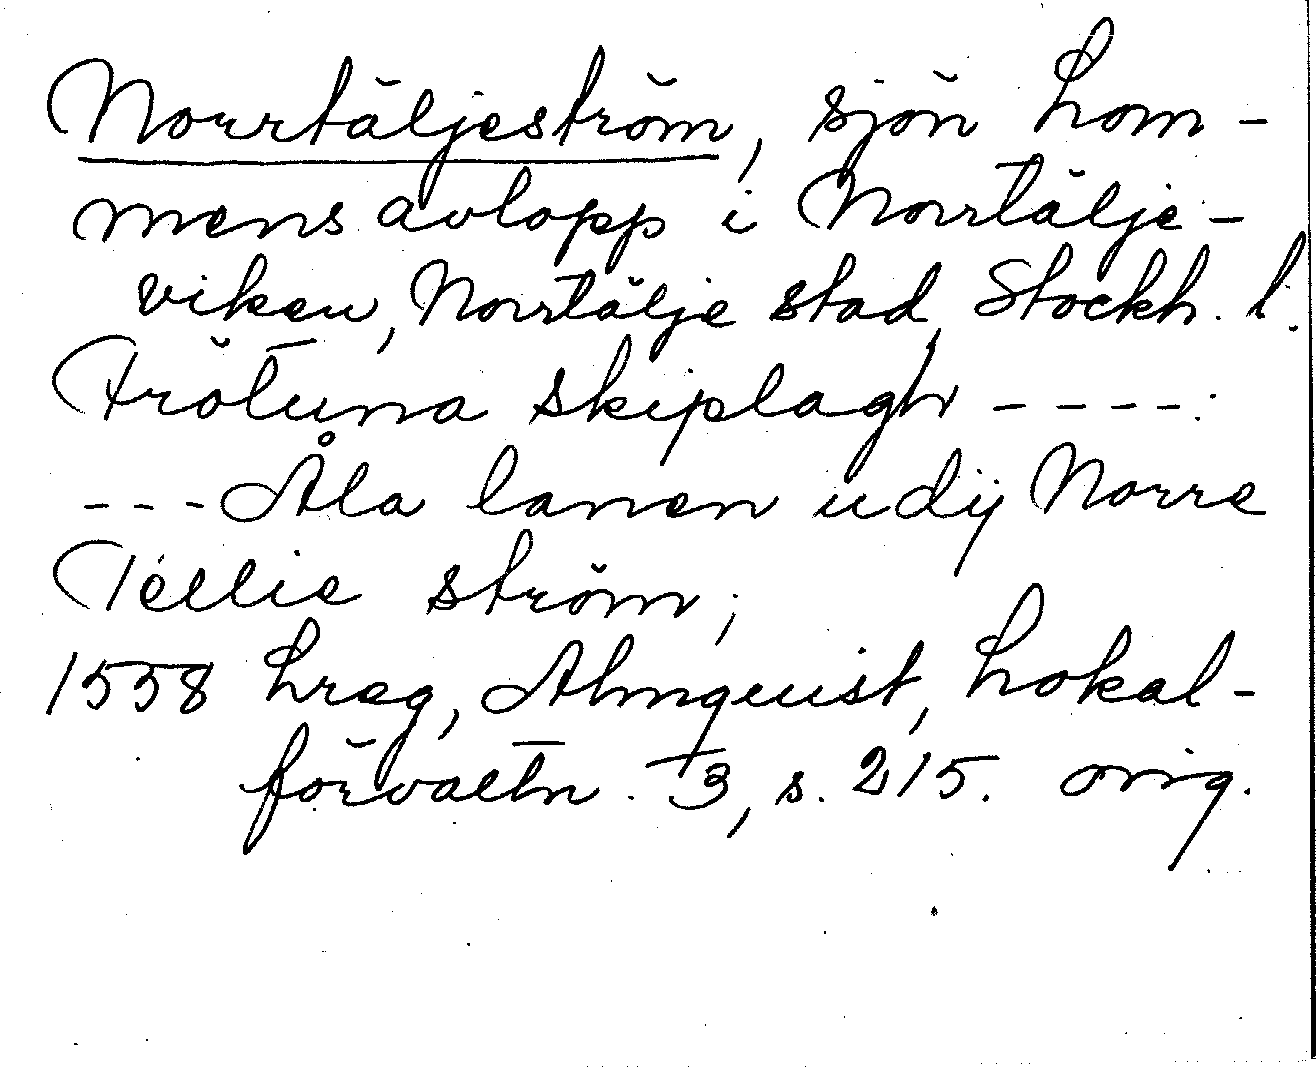 Norrtäljeström, sjön Lom-
mens avlopp i Norrtälje-
viken, Norrtälje stad, Stockh. l.
Frötuna skiplagh ----.
--- Åla lanen udij Norre
Tellie ström;
1558 Lreg, Almquist, Lokal-
förvaltn. 3, s. 215. orig.